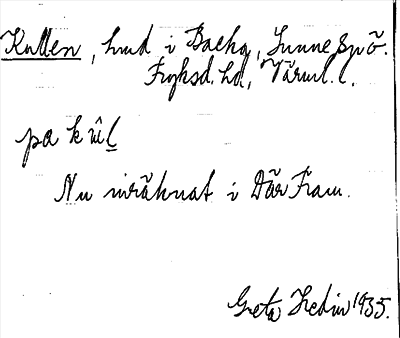 Kullen, hmd i Backa, Sunne sn.
Fryksd. hd, Värml. l.
pa k û l
Nu inräknat i Där Fram.
Greta Hedin 1935.